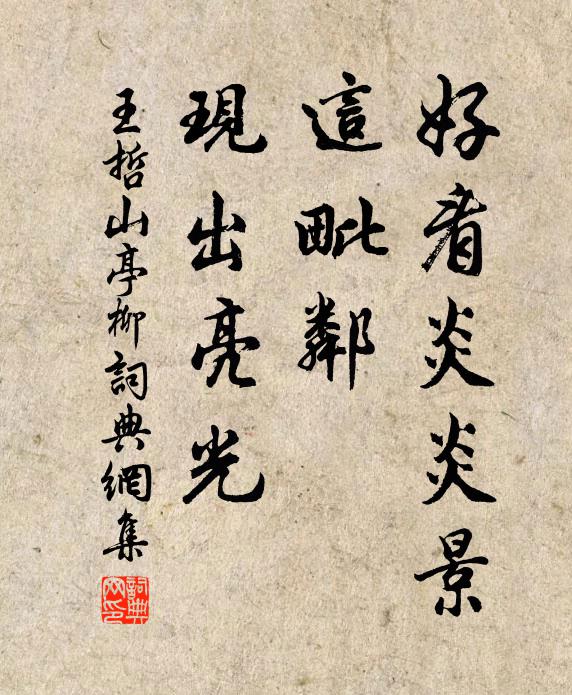 好看炎炎景
這毗鄰
現出亮光
王哲山亭柳詞典網集
詞典網印